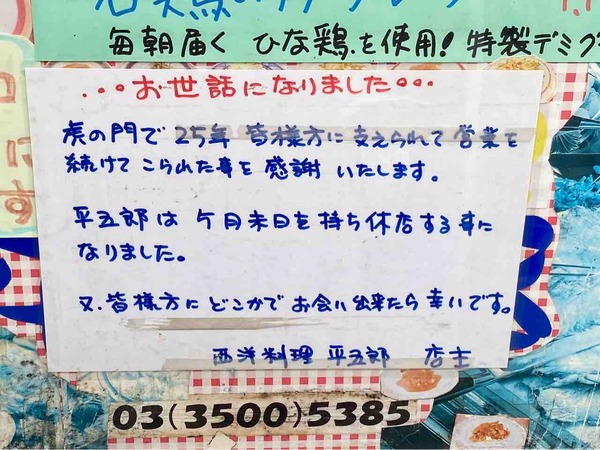 毎朝届く ひな鶏.を使用! 特製デミグ
...お世話になりました...
虎の門で 25年 皆様方に支えられて営業を
続けてこられた事を感謝いたします。
平五郎は 5月末日を持ち休店する事に
なりました。
又.皆様方にどこかでお会い出来たら幸いです。
西洋料理 平五郎 店主
03(3500)5385